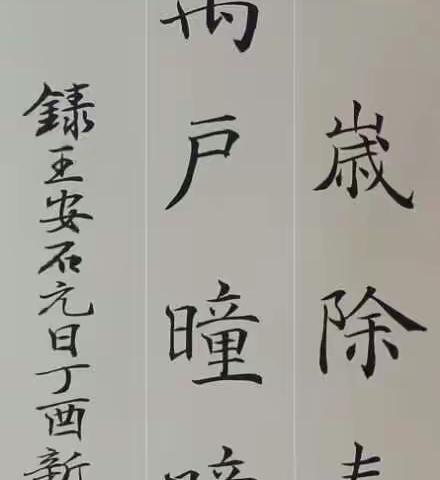 嵗除
戸曈
録王安石元日丁酉新